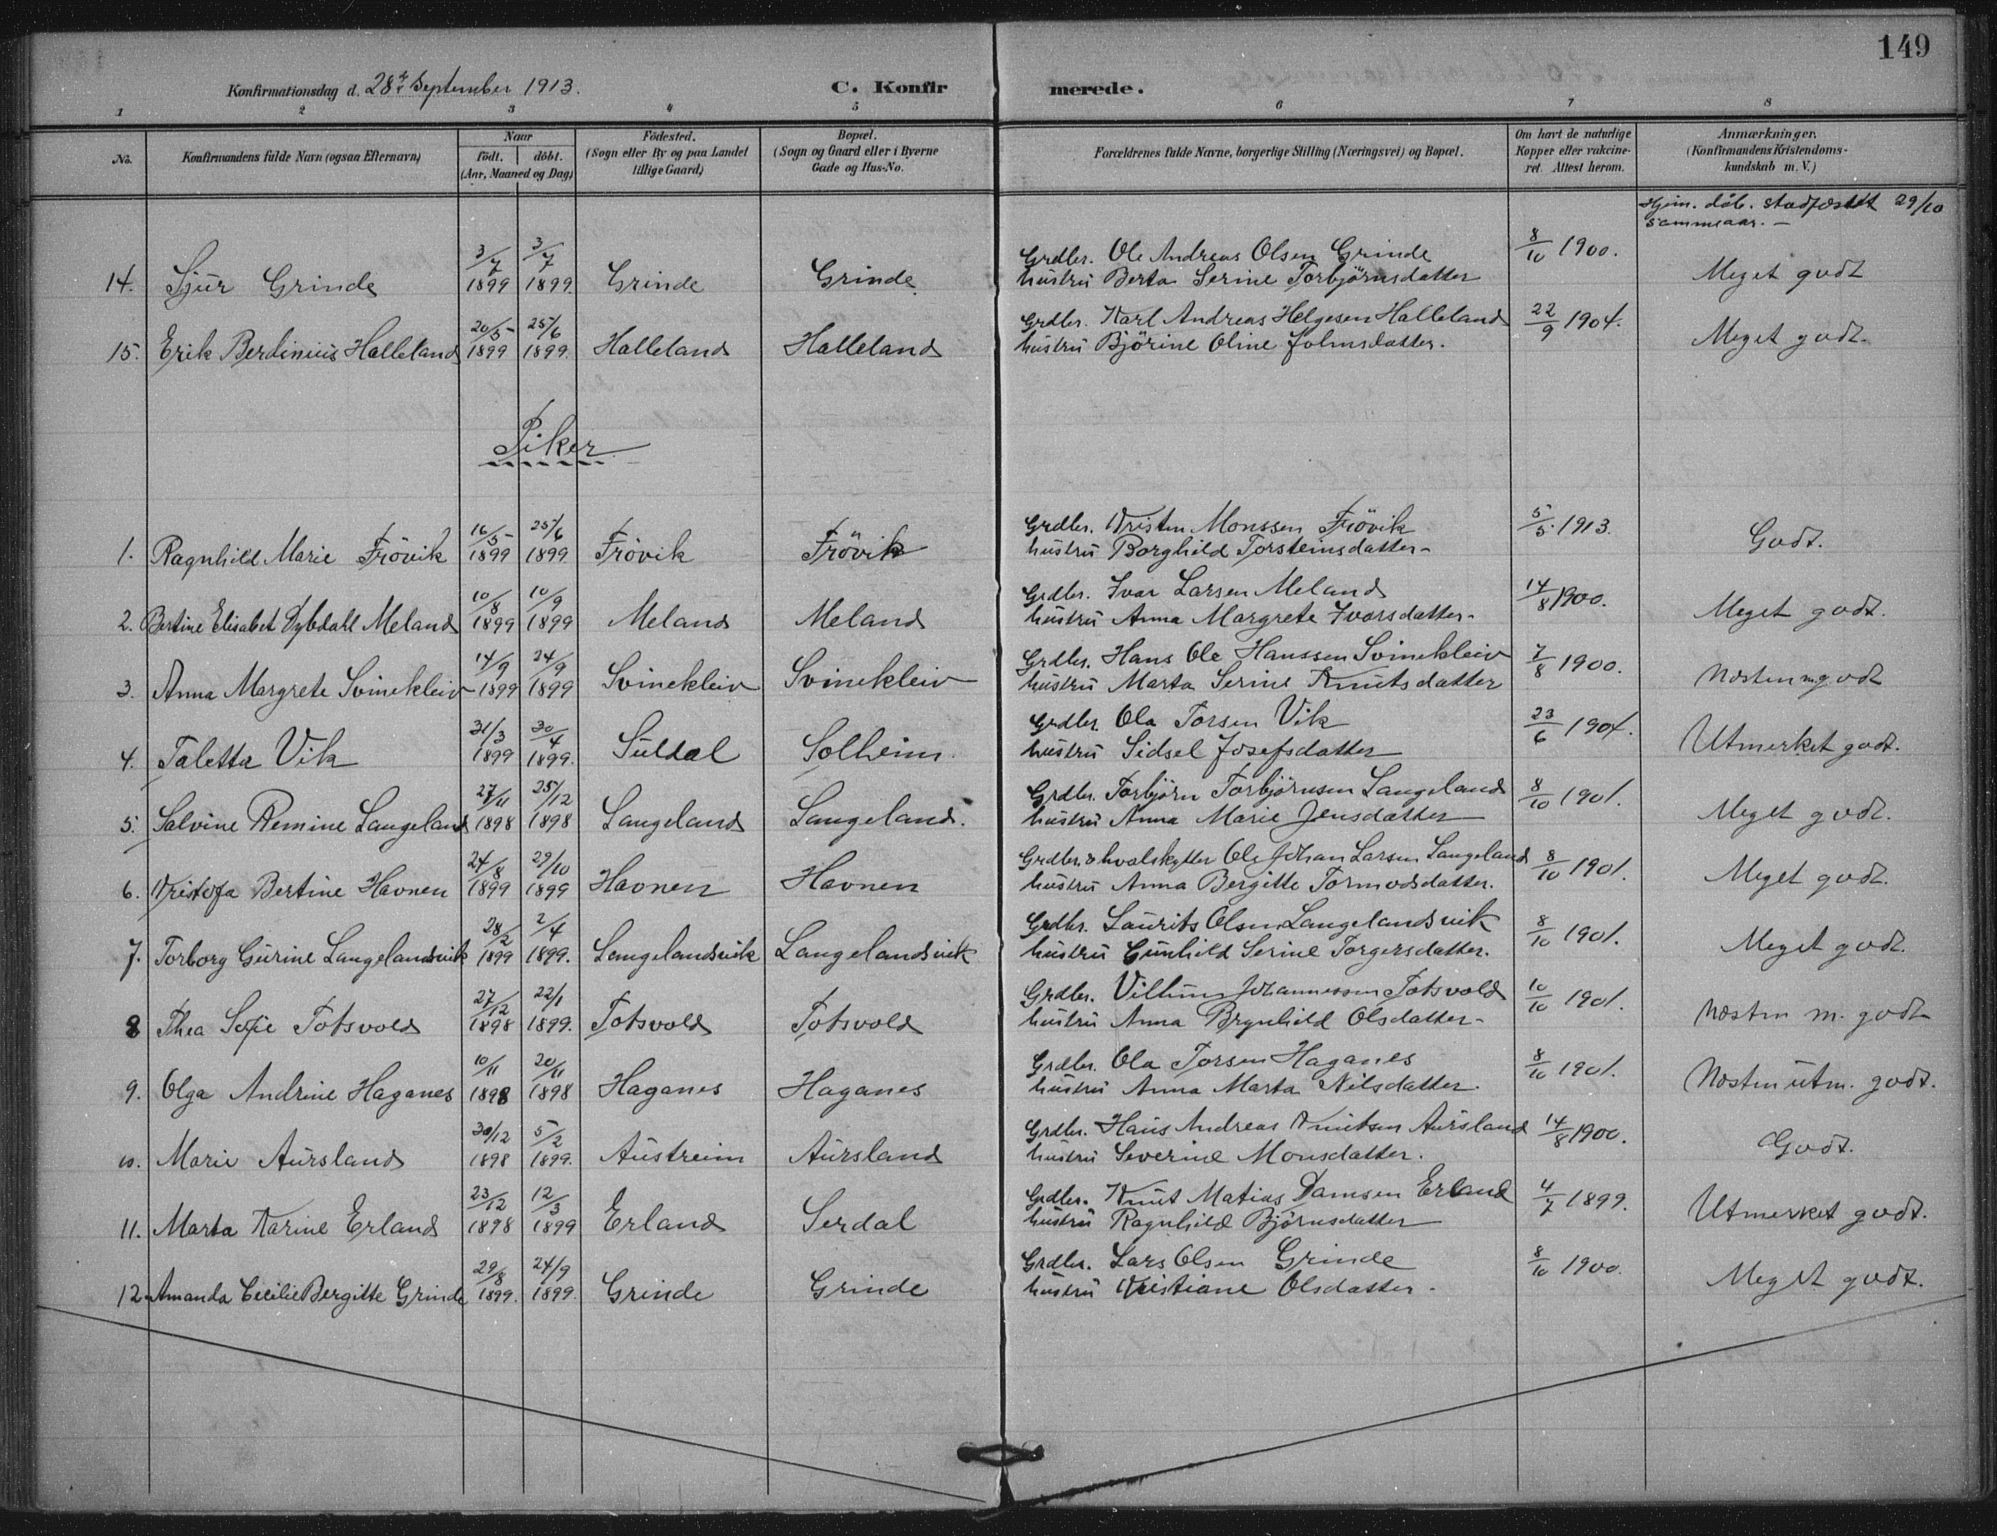 149
Konfirmationsdag d. 28de September 1913. C. Konfirmerede.
1 2 3 4 5 6 7 8
No. Konfirmandens fulde Navn (ogsaa Efternavn) Naar födt. döbt. (Aar, Maaned og Dag) Födested. (Sogn eller By og paa Landet tillige Gaard) Bopæl. (Sogn og Gaard eller i Byerne Gade og Hus-No. Forældrenes fulde Navne, borgerlige Stilling (Næringsvei) og Bopæl. Om havt de naturlige Kopper eller vakcineret. Attest herom. Anmærkninger. (Konfirmandens Kristendomskundskab m. V.)
Hjem. döb. stadfæstet 29/10
samme aar. –
14. Sjur Grinde 3/7 1899 3/7 1899. Grinde Grinde Grdbr. Ole Andreas Olsen Grinde 8/10 1900. Meget godt
hustru Berta Serine Torbjörnsdatter
15. Erik Berdinius Halleland 20/5 1899 25/6 1899. Halleland Halleland Grdbr. Karl Andreas Helgesen Halleland 22/9 1904. Meget godt.
hustru Björine Oline Johnsdatter.
Piker
1. Ragnhild Marie Frövik 16/5 1899 25/6 1899 Frövik Frövik Grdbr. Kristen Monssen Frövik 5/5 1913. Godt.
hustru Borghild Torsteinsdatter–
2. Bertine Elisabet Dybdall Meland 10/8 1899 10/9 1899 Meland Meland Grdbr. Ivar Larsen Meland 14/8 1900. Meget godt.
hustru Anna Margrete Ivarsdatter–
3. Anna Margrete Svinekleiv 14/9 1899 24/9 1899 Svinekleiv Svinekleiv Grdbr. Hans Ole Hanssen Svinekleiv 7/8 1900. Næsten m. godt
hustru Marta Serine Knutsdatter
4. Taletta Vik 31/3 1899 30/4 1899. Suldal Solheim. Grdbr. Ola Torsen Vik 23/6 1904. Utmerket godt.
hustru Sidsel Josefsdatter
5. Salvine Remine Langeland 27/11 1898 25/12 1898 Langeland Langeland. Grdbr. Torbjörn Torbjörnsen Langeland 8/10 1901. Meget godt.
hustru Anna Marie Jensdatter
6. Kristofa Bertine Havnen 24/8 1899 29/10 1899 Havnen Havnen Grdbr. & hvalskytter Ole Johan Larsen Langeland 8/10 1901. Meget godt.
hustru Anna Bergitte Tormodsdatter.
7. Torborg Gurine Langelandsvik 28/2 1899 2/4 1899. Langelandsvik Langelandsvik Grdbr. Laurits Olsen Langelandsvik 8/10 1901. Meget godt.
hustru Gunhild Serine Torgersdatter.
8 Thea Sofie Totsvold 27/12 1898 22/1 1899. Totsvold Totsvold Grdbr. Johannessen Totsvold 10/10 1901. Næsten m. godt
hustru Anna Brynhild Olsdatter–
9. Olga Andrine Haganes 10/11 1898 20/11 1898 Haganes Haganes Grdbr. Ola Torsen Haganes 8/10 1901. Næsten utm. godt.
hustru Anna Marta Nilsdatter.
10. Marie Aursland 30/12 1898 5/2 1899. Austreim Aursland Grdbr. Hans Andreas Knutsen Aursland 14/8 1900. Godt.
hustru Severine Monsdatter.
11. Marta Karine Erland 23/12 1898 12/3 1899 Erland Serdal Grdbr. Knut Matias Erland 4/7 1899. Utmerket godt.
hustru Ragnhild Björnsdatter
12 Amanda Cecilie Bergitte Grinde 29/8 1899. 24/9 1899. Grinde Grinde Grdbr. Lars Olsen Grinde 8/10 1900. Meget godt.
hustru Kristiane Olsdatter.